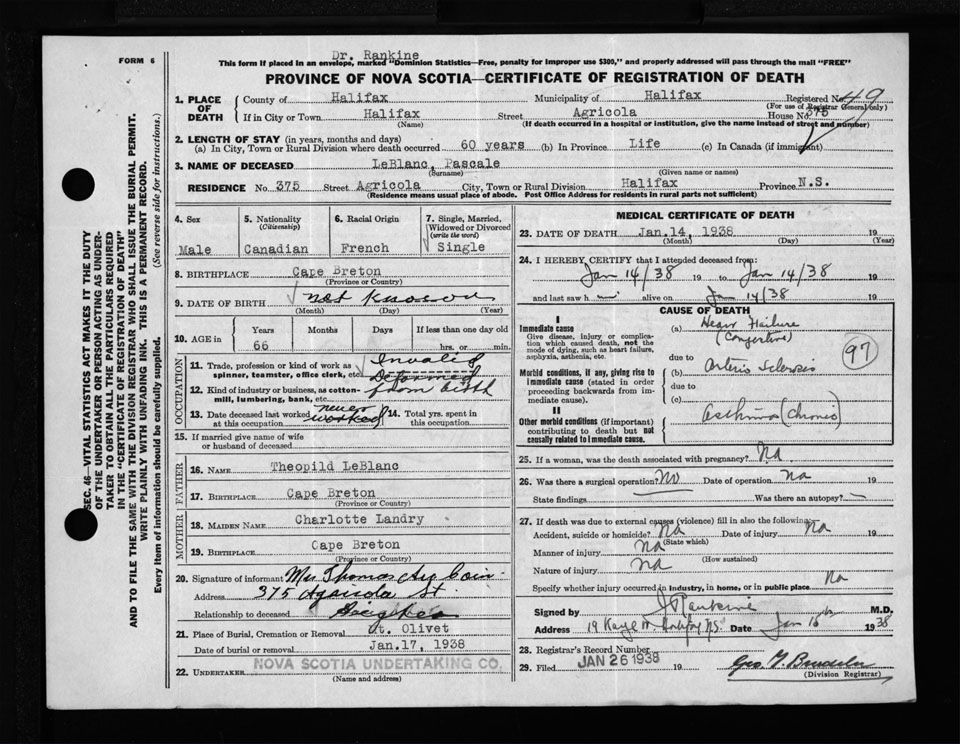 Dr. Rankine
FORM 6
This form if placed in an envelope, marked "Dominion Statistics—Free, penalty for improper use $300," and properly addressed will pass through the mail "FREE"
PROVINCE OF NOVA SCOTIA—CERTIFICATE OF REGISTRATION OF DEATH
1. PLACE OF DEATH
County of Halifax Municipality of Halifax Registered No. 49
(For use of Registrar General only)
If in City or Town Halifax Street Agricola House No. 375
(Name) (If death occurred in a hospital or institution, give the name instead of street and number)
2. LENGTH OF STAY (in years, months and days)
(a) In City, Town or Rural Division where death occurred 60 years (b) In Province Life (c) In Canada (if immigrant)
3. NAME OF DECEASED LeBlanc, Pascale
(Surname) (Given name or names)
RESIDENCE No. 375 Street Agricola City, Town or Rural Division Halifax Province N.S.
(Residence means usual place of abode. Post Office Address for residents in rural parts not sufficient)
4. Sex
Male
5. Nationality
(Citizenship)
Canadian
6. Racial Origin
French
7. Single, Married, Widowed or Divorced
(write the word)
Single
8. BIRTHPLACE Cape Breton
(Province or Country)
9. DATE OF BIRTH not known
(Month) (Day) (Year)
10. AGE in
Years Months Days If less than one day old
66 hrs. or min.
OCCUPATION
11. Trade, profession or kind of work as spinner, teamster, office clerk, etc. Invalid
Deformed
12. Kind of industry or business, as cotton-mill, lumbering, bank, etc. from birth
13. Date deceased last worked at this occupation never worked
14. Total yrs. spent in this occupation
15. If married give name of wife or husband of deceased
FATHER
16. NAME Theopild LeBlanc
17. BIRTHPLACE Cape Breton
(Province or Country)
MOTHER
18. MAIDEN NAME Charlotte Landry
19. BIRTHPLACE Cape Breton
(Province or Country)
20. Signature of informant Mrs Thomas
Address 375 Agricola St.
Relationship to deceased
21. Place of Burial, Cremation or Removal Mt. Olivet
Date of burial or removal Jan.17, 1938
22. UNDERTAKER NOVA SCOTIA UNDERTAKING CO.
(Name and address)
MEDICAL CERTIFICATE OF DEATH
23. DATE OF DEATH Jan.14, 1938 19
(Month) (Day) (Year)
24. I HEREBY CERTIFY that I attended deceased from:
Jan 14/38 19 to Jan 14/38 19
and last saw him alive on Jan 14/38 19
CAUSE OF DEATH
I
Immediate cause
Give disease, injury or complication which caused death, not the mode of dying, such as heart failure, asphyxia, asthenia, etc.
(a) Heart Failure
(Congestive)
due to
Morbid conditions, if any, giving rise to immediate cause (stated in order proceeding backwards from immediate cause).
(b) Arterio Sclerosis
due to
(c)
97
II
Other morbid conditions (if important) contributing to death but not causally related to immediate cause.
Asthma (Chronic)
25. If a woman, was the death associated with pregnancy? Na
26. Was there a surgical operation? No Date of operation na
State findings Was there an autopsy? —
27. If death was due to external causes (violence) fill in also the following:
Accident, suicide or homicide? Na Date of injury na 19
(State which)
Manner of injury na
(How sustained)
Nature of injury na
Specify whether injury occurred in industry, in home, or in public place na
Signed by J Rankine M.D.
Address 19 Kaye St. Halifax N.S. Date Jan 16th 1938
28. Registrar's Record Number
29. Filed JAN 26 1938 19
(Division Registrar)
SEC. 46—VITAL STATISTICS ACT MAKES IT THE DUTY
OF THE UNDERTAKER OR PERSON ACTING AS UNDER-
TAKER TO OBTAIN ALL THE PARTICULARS REQUIRED
IN THE "CERTIFICATE OF REGISTRATION OF DEATH"
AND TO FILE THE SAME WITH THE DIVISION REGISTRAR WHO SHALL ISSUE THE BURIAL PERMIT.
WRITE PLAINLY WITH UNFADING INK. THIS IS A PERMANENT RECORD.
Every item of information should be carefully supplied. (See reverse side for instructions.)